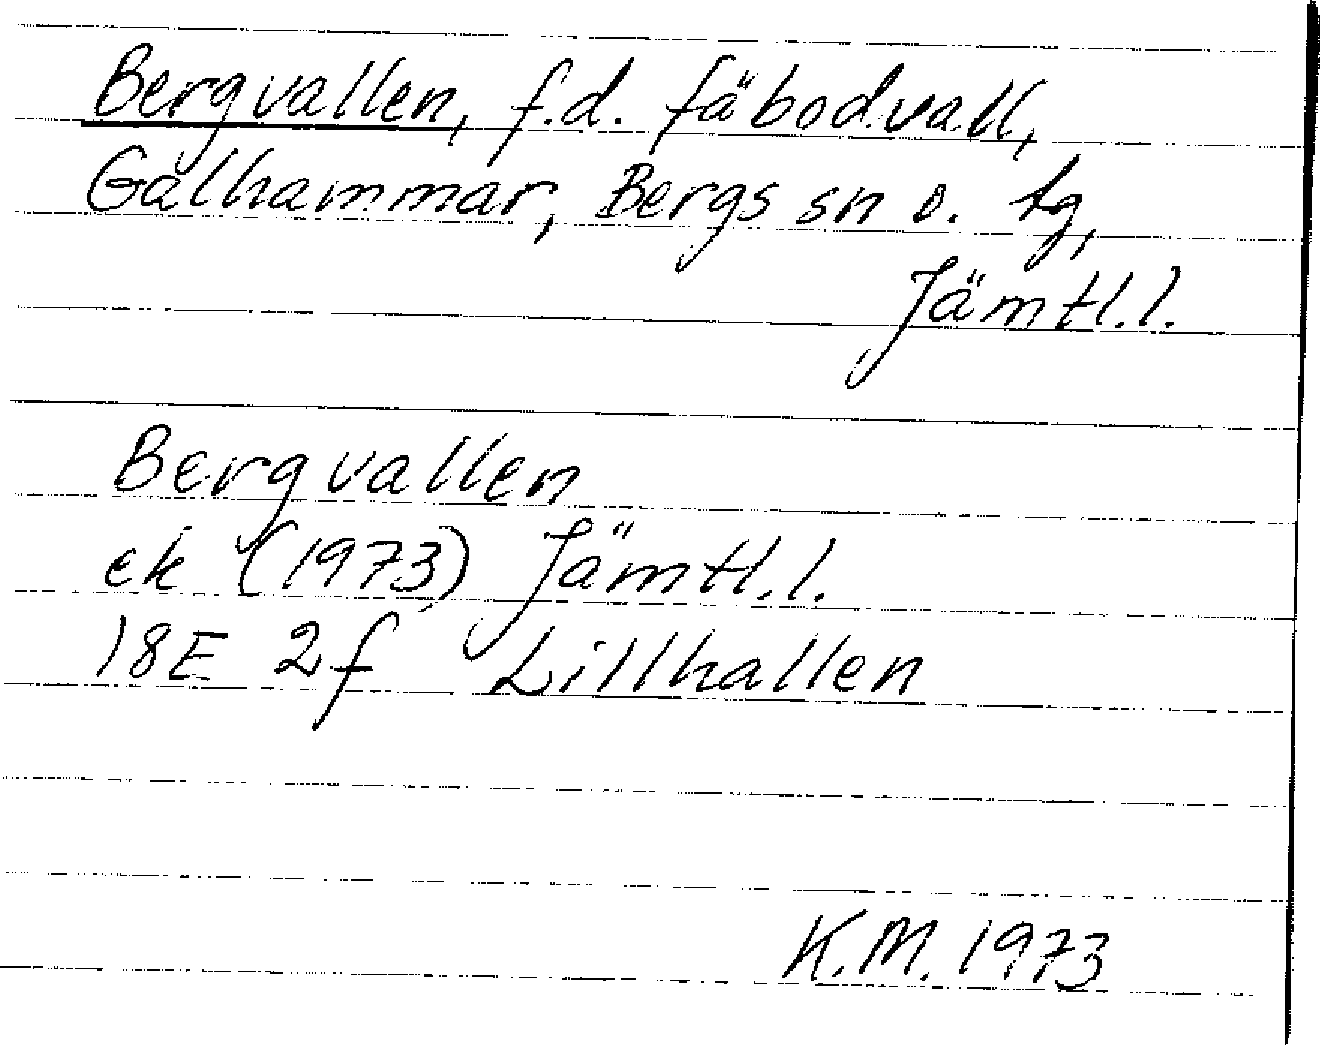 Bergvallen, f.d. fäbodvall,
Galhammar, Bergs sn o. tg,
Jämtl.l.
Bergvallen
ek (1973) Jämtl.l.
18E 2f Lillhallen
K.M. 1973